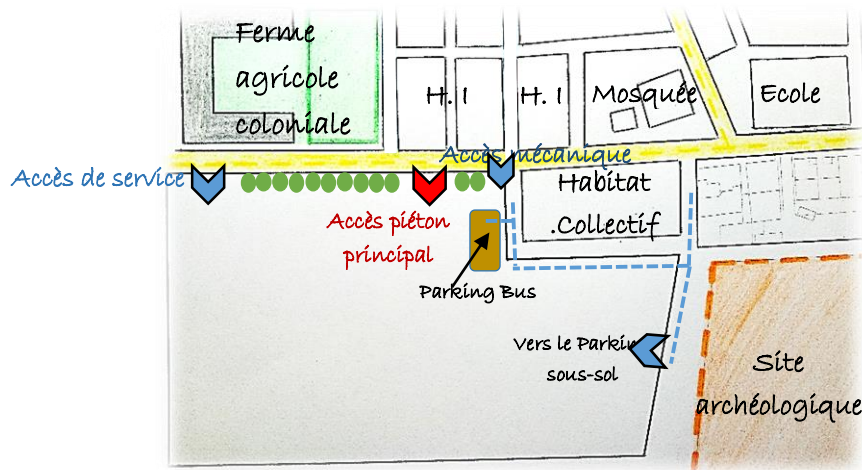 Ferme
agricole
coloniale
H. I
H. I
Mosquée
Ecole
Accès mécanique
Accès de service
Habitat
.Collectif
Accès piéton
principal
Parking Bus
Vers le Parking
sous-sol
Site
archéologique